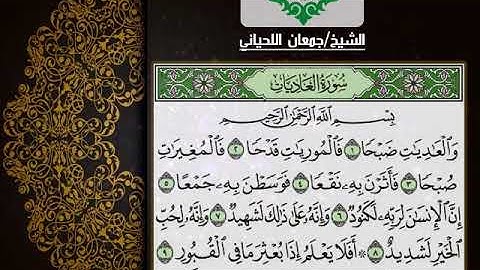 الشيخ/جمعان اللحياني
سُورَةُ العَادِيَاتِ
بِسْمِ اللَّهِ الرَّحْمَٰنِ الرَّحِيمِ
وَالْعَادِيَاتِ ضَبْحًا ١ فَالْمُورِيَاتِ قَدْحًا ٢ فَالْمُغِيرَاتِ
صُبْحًا ٣ فَأَثَرْنَ بِهِ نَقْعًا ٤ فَوَسَطْنَ بِهِ جَمْعًا ٥
إِنَّ الْإِنسَانَ لِرَبِّهِ لَكَنُودٌ ٦ وَإِنَّهُ عَلَىٰ ذَٰلِكَ لَشَهِيدٌ ٧ وَإِنَّهُ لِحُبِّ
الْخَيْرِ لَشَدِيدٌ ٨ ۞ أَفَلَا يَعْلَمُ إِذَا بُعْثِرَ مَا فِي الْقُبُورِ ٩